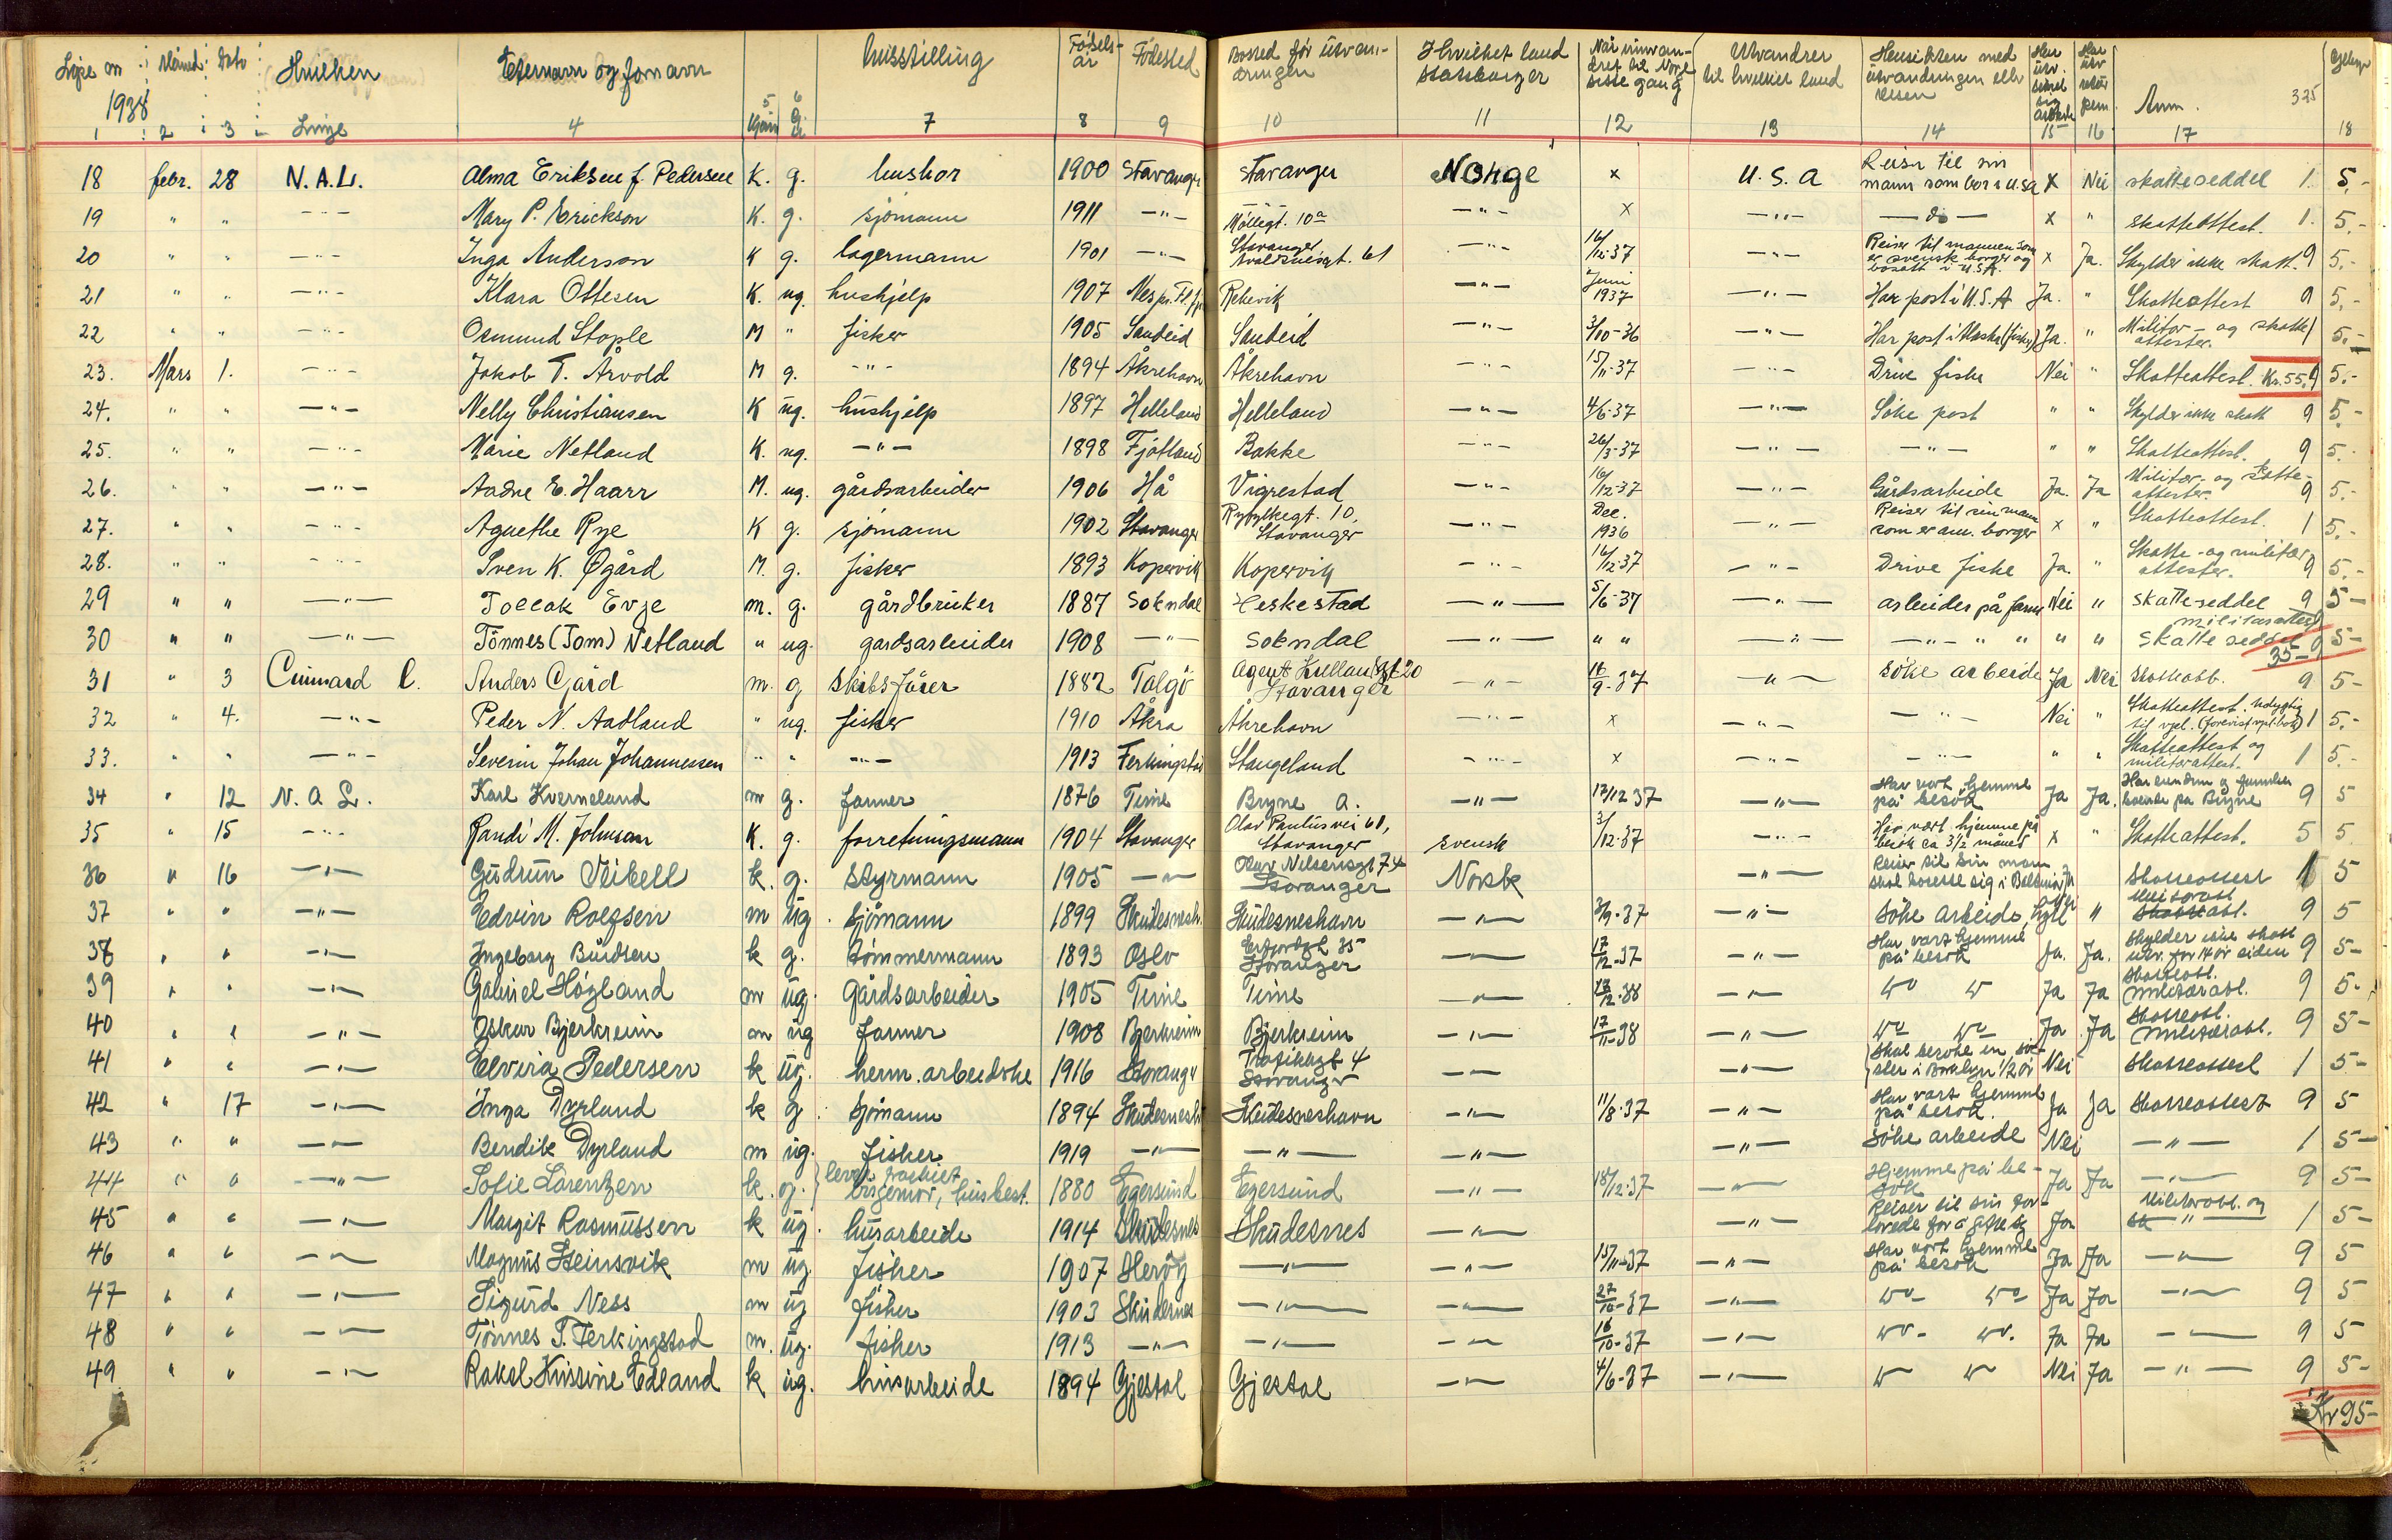 Löpe nr. Måned Dato Hvilken Etternavn og fornavn livsstilling Fødsels- år Fødested Bosted før utvan- dringen Hvilket land statsborger Når innvan- dret til Norge siste gang Utvandrer til hvilket land Hensikten med utvandringen eller reisen Har utv. Anm. 325
1938
1 2 3 Linje 4 Kjön 5 6 7 8 9 10 11 12 13 14 15 16 17 18
18 febr. 28 N.A.L. Alma Eriksen f. Pedersen K. g. 1900 Stavanger Stavanger Norge x U.S.A Reiser til sin mann som bor i U.S.A x Nei skatteseddel 1 5,-
19 " " -"- Mary P. Erickson K. g. sjömann 1911 -"- Möllegt. 10a -"- x -"- -do- x " skatteattest. 1. 5,-
20 " " -"- Inga Anderson K g. lagermann 1901 -"- Stavanger Avaldsnesgt. 61 -"- 16/12-37 -"- Reiser til mannen som er svensk borger og bosatt i U.S.A. x Ja. Skylder ikke skatt. 9 5,-
21 " " -"- Klara Ottesen K. ug. hushjelp 1907 Rekevik -"- Juni 1937 -"- Har post i U.S.A Ja. " Skatteattest 9 5,-
22 " " -"- Osmund Stople M " fisker 1905 Sandeid Sandeid -"- 3/10-36 -"- Har post i Alaska (fiske) Ja. " Militær- og skatte attester. 1 5.-
23. Mars 1. -"- Jakob T. Årvold M g. -"- 1894 Åkrehavn Åkrehavn -"- 15/11-37 -"- Drive fiske Nei " Skatteattest. Kr. 55,- 9 5.-
24. " " -"- Nelly Christiansen K ug. hushjelp 1897 Helleland Helleland -"- 4/6-37 -"- Söke post " " Skylder ikke skatt 9 5-
25. " " -"- Marie Netland K. ug. -"- 1898 Fjotland Bakke -"- 26/3-37 -"- -"- " " Skatteattest. 9 5.-
26. " " -"- Aadne E. Haarr M. ug. gårdsarbeider 1906 Hå Vigrestad -"- 16/12-37 -"- Gårdsarbeide Ja. Ja Militær- og skatte- attester. 9 5.-
27. " " -"- Agnethe Rye K g. sjömann 1902 Stavanger Ryfylkegt. 10, Stavanger -"- Dec. 1936 -"- Reiser til sin mann som er am. borger x " Skatteattest. 1 5.-
28. " " -"- Sven K. Øgård M. g. fisker 1893 Kopervik Kopervik -"- 16/12-37 -"- Drive fiske Ja. " Skatte- og militær attester. 9 5.-
29 " " -"- Tollak Evje m. g. gårdbruker 1887 Sokndal Heskestad -"- 5/6-37 -"- arbeider på farm Nei " skatte-seddel 9 5-
militærattest
30 " " -"- Tönnes (Tom) Netland " ug. gardsarbeider 1908 -"- Sokndal -"- " " -"- -"- " " " " skatteseddel 9 5-
35-
31 " 3 Cunnard L. Anders Gard m. g skibsförer 1882 Talgö Agent Kiellandsgt 20 Stavanger -"- 18/9-37 -"- söke arbeide Ja Nei skatteatt. 9 5-
32 " 4. -"- Peder N. Aadland " ug. fisker 1910 Åkra Åkrehavn -"- x -"- -"- Nei " Skatteattest. Udygtig til vpl. (forevist vpl.bok) 1 5.-
33. " " -"- Severin Johan Johannessen " " -"- 1913 Ferkingstad Stangeland -"- x -"- -"- " " Skatteattest og militærattest. 1 5.-
34 " 12 N.A.L. Karl Kverneland m g. farmer 1876 Time Bryne a. -"- 12/12 37 -"- Har vært hjemme på besök Ja Ja. 9 5
35 " 15 -"- Randi M. Johnson K. g. forretningsmann 1904 Stavanger Olav Paulusvei 61, Stavanger svensk 3/12-37 -"- Har vært hjemme på besök ca 3 1/2 måned x " Skatteattest. 5 5
36 " 16 -"- Gudrun Veibell k. g. Styrmann 1905 -"- Olav Nilsensgt 74 Stavanger Norsk -"- Reiser til sin mann skal bosette sig i Skatteattest 1 5
37 " " -"- Edvin Roelsen m ug. sjömann 1899 Skudeneshavn -"- 3/9-37 -"- Söke arbeide, " Militæratt 9 5
38 " " -"- Ingeborg Bårdsen k g. tömmermann 1893 Oslo Erfjordgt 35 Stavanger -"- 17/12-37 -"- Har vært hjemme på besök Ja. Ja. Skylder ikke skatt utv. for 14 år siden 9 5-
39 " " -"- Gabriel Högland m ug. Gårdsarbeider 1905 Time Time -"- 13/12-38 -"- Ja Ja Skatteatt. Militæratt. 9 5-
40 " " -"- Oskar Bjerkreim m ug farmer 1908 Bjerkreim Bjerkreim -"- 17/11-38 -"- Ja Ja Skatteatt. Militæratt. 9 5-
41 " " -"- Elvira Pedersen k ug. herm. arbeidske 1916 Stavanger Trafikkgt 4 Stavanger -"- -"- Skal besöke en sös- ter i Brooklyn 1/2 år Nei Skatteattest 1 5-
42 " 17 -"- Inga Dyrland k g. Sjömann 1894 Skudeneshavn -"- 11/8-37 -"- Har vært hjemme på besök. Ja Ja Skatteattest 9 5
43 " " -"- Bendik Dyrland m ug. fisker 1919 -"- -"- -"- -"- Söke arbeide Nei -"- 1 5-
44 " " -"- Sofie Lorentzen k. g. husbest. 1880 Egersund Egersund -"- 18/12-37 -"- Hjemme på be- sök Ja Ja -"- 9 5-
45 " " -"- Margit Rasmussen k ug. husarbeide 1914 Skudesnes Skudesnes -"- -"- Reiser til sin for- lovede for å gifte sig Ja Militæratt. og -"- 1 5-
46 " " -"- Magnus Steinsvik m ug. fisker 1907 Heröy -"- -"- 15/11-37 -"- Har vært hjemme på besök Ja Ja -"- 9 5
47 " " -"- Sigurd Ness m ug fisker 1903 Skudenes -"- -"- 27/10-37 -"- Ja Ja -"- 9 5
48 " " -"- Tönnes T. Ferkingstad m. ug. fisker 1913 -"- -"- -"- 16/10-37 -"- Ja Ja -"- 9 5
49 " " -"- Rakel Kristine Edland k ug. husarbeide 1894 Gjestal Gjestal -"- 4/6-37 -"- Nei Ja -"- 9 5-
Kr 95-